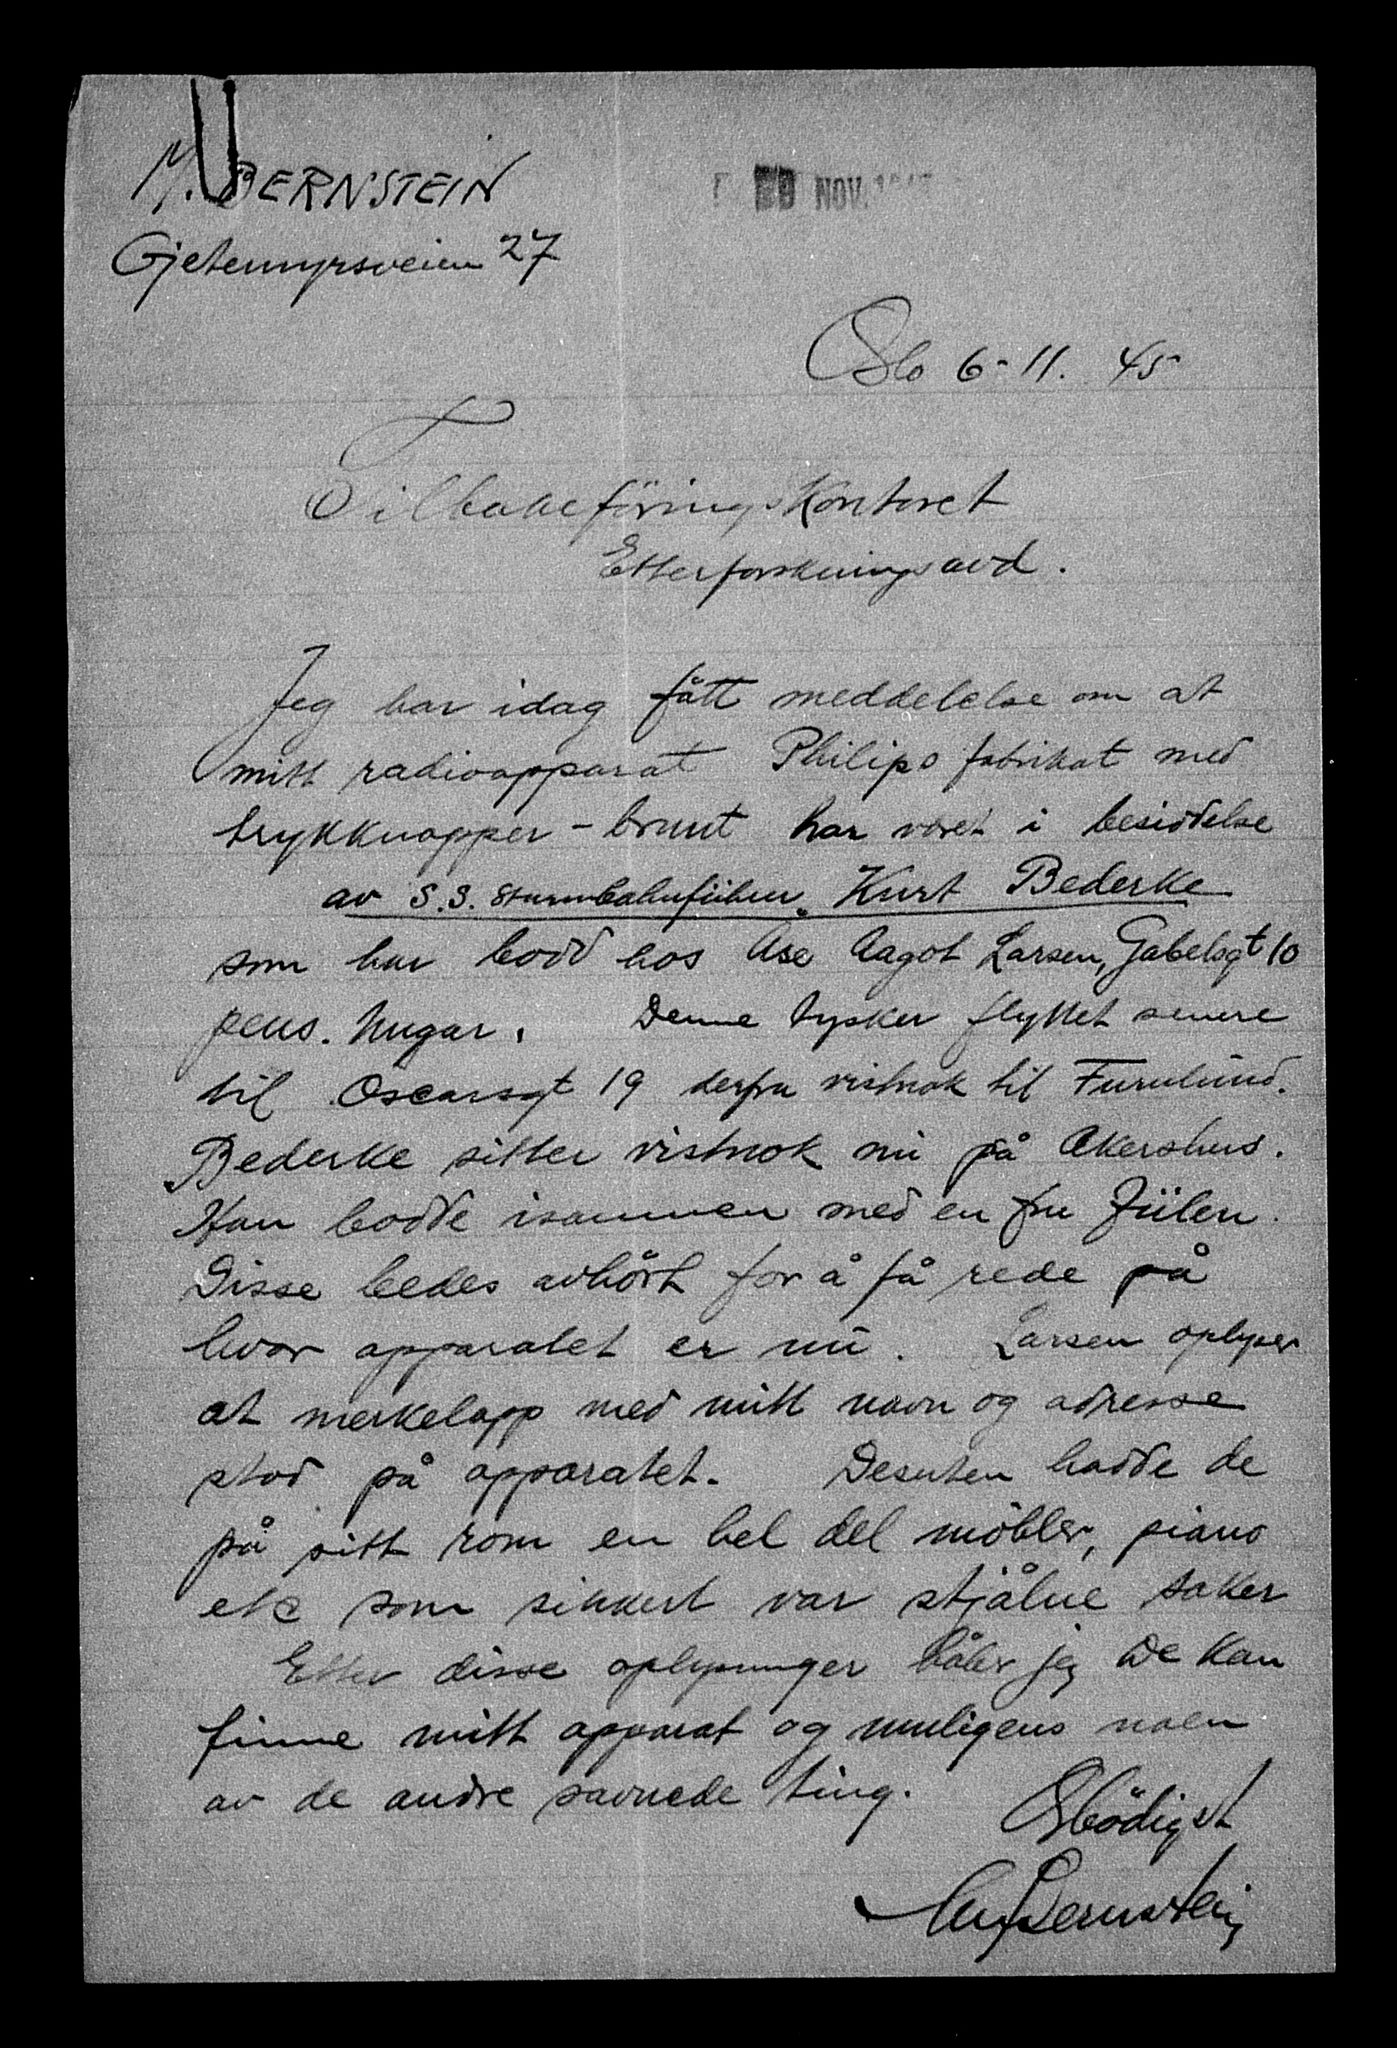 M. BERNSTEIN
NOV.
Gjetemyrsveien 27
Oslo 6-11. 45
Tilbakeføringskontoret
Etterforskningsavd.
Jeg har idag fått meddelelse om at
mitt radioapparat Philips fabrikat med
trykknapper - brunt har været i besiddelse
av S.S. Sturmbahnführer Kurt Bederke
som har bodd hos Åse Aagot Larsen, Gabelsgt 10
pens. Norgar. Denne tysker flyttet senere
til Oscarsgt 19 derfra vistnok til Furulund.
Bederke sitter vistnok nu på Akershus.
Han bodde isammen med en fru Jülen.
Disse bedes avhört for å få rede på
hvor apparatet er nu. Larsen oplyser
at merkelapp med mitt navn og adresse
stod på apparatet. Desuten hadde de
på sitt rom en hel del möbler, piano
etc som sikkert var stjålne saker
Etter disse oplysninger håber jeg De kan
finne mitt apparat og muligens noen
av de andre savnede ting.
Ærbödigst
M Bernstein